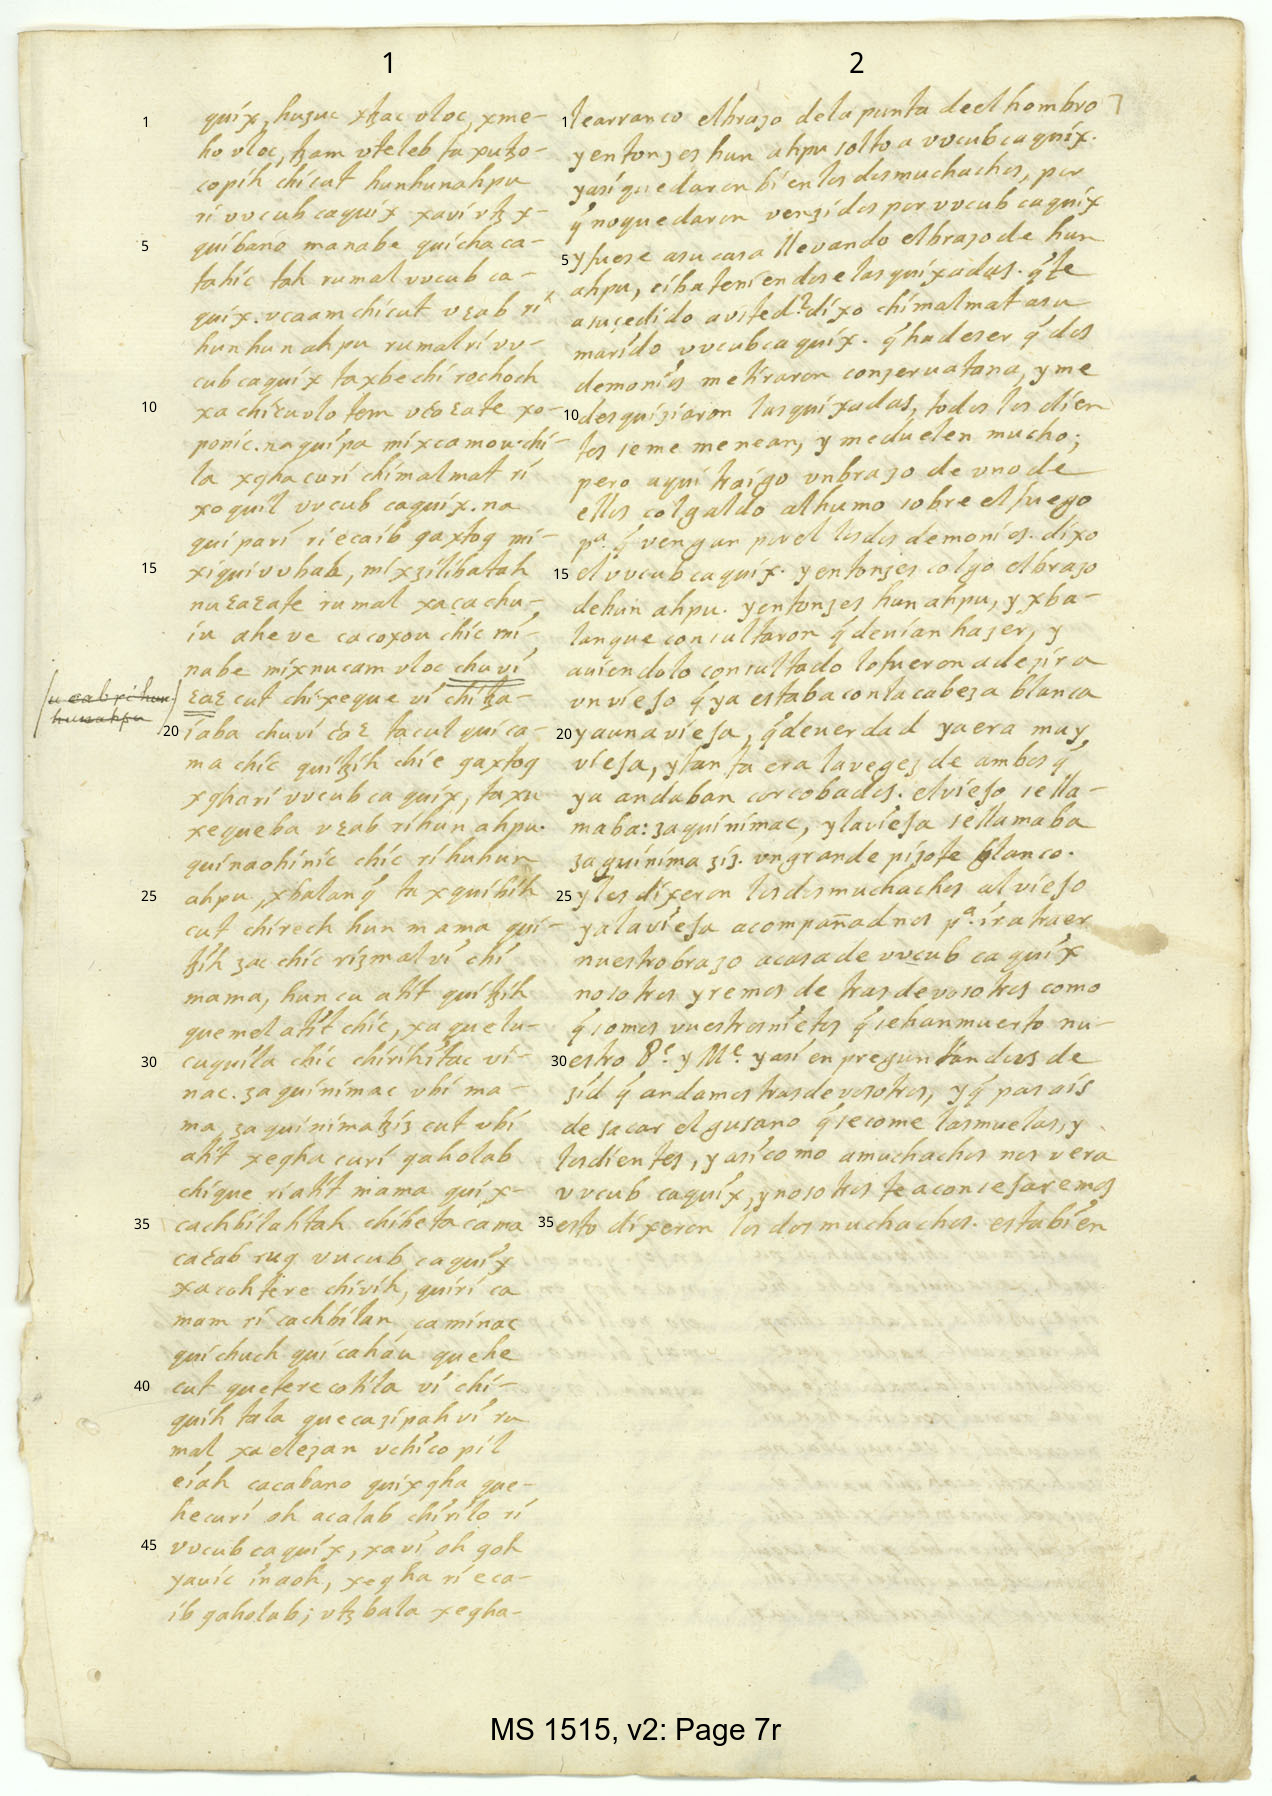 1
quíx, huʒuc xꜩac vloc, xme-
ho vloc, ꜩam vteleb ta xuꜩo-
copíh chícut hunhunahpu
ri vvcub caquíx xaví vꜩ x-
quíbano manabe quícha ca-
tahíc tah rumal vvcub ca-
quix. vcaam chícut vɛab rí
hunhun ahpu rumal rí vv-
cub caquíx taxbe chí rochoch
xa chíɛuvlo tem vɛoɛate xo-
poníc. naquípa míxcamou chí-
la xqha curí chímalmat rí
xoquíl vvcub caquíx. na
quíparí ríecaíb qaxtoq mí-
xíquívvbah, míxʒilíbatah
nuɛaɛate rumal xacachu-
íu aheve cacoxou chíc mí-
nabe míxnucam vloc chuví
ɛaɛ cut chíxeque ví chíꜩa-
íaba chuví ɛaɛ tacul quíca-
ma chíc quíꜩíh chíe qaxtoq
xqharí vvcub ca quíx, taxu
xequeba vɛab ríhun ahpu.
quínaohíníc chíc ríhuhun
ahpu, xbalanq̃ ta xquíbíh
cut chírech hun mama quí-
ꜩíh ʒac chíc ríʒmal ví chí
mama, hun cu atít quíꜩíh
quemel atít chíc, xa quelu-
cuquíla chíc chíríhítac ví-
nac. ʒaquínímac vbí ma-
ma, ʒaquínímaꜩíʒ cut vbí
atít xeqha curí qaholab
chíque ríatít mama quíx-
cachbílahtah chíbeta cama
caɛab ruq vucub caquíx
xacohtere chívíh, quírí ca
mam rí cachbílan camínac
quíchuch quícaháu quehe
cut quetere cotíla ví chí-
quíh tala quecaʒípah ví ru
mal xaeleʒan vchíco píl
eíah cacabano quíxqha que-
hecurí oh acalab chírílo rí
vvcub caquíx, xaví oh qoh
yavíc ínaoh, xeqha ríeca-
íb qaholab; vꜩ bala xeqha-
u ɛab ri hun
hunahpu
2
le arranco el braʒo de la punta de el hombro
y entonʒes hun ahpu solto a vvcub caquíx.
y así quedaron bíen los dos muchachos, por
q̃ no quedaron venʒidos por vvcub caquíx
y fuese a su casa llevando el braʒo de hun
ahpu, e íba teníendose las quíxadas. q̃ te
a suçedido a vsted? díxo chímalmat a su
marído vvcub caquíx. q̃ ha de ser q̃ dos
demoníos me tíraron con ʒeruatana, y me
desquíʒiaron las quíxadas, todos los díen
tes se me menean, y me duelen mucho;
pero aquí traígo vn braʒo de vno de
ellos colgaldo al humo sobre el fuego
pª. q̃ vengan por el los dos demoníos. díxo
el vvcub caquíx. y entonʒes colgo el braʒo
de hun ahpu. y entonʒes hun ahpu, y xba-
lanque consultaron q̃ deuían haʒer, y
auíendolo consultado lo fueron a deʒír a
vn víejo q̃ ya estaba con la cabeʒa blanca
y a una víeja, q̃ de verdad ya era muy
víeja, y tan ta era la vegeʒ de ambos q̃
ya andaban corcobados. el víejo se lla-
maba: ʒaquínímac, y la víeja se llamaba
ʒaquíníma ʒíʒ. vn grande píʒote blanco.
y les díxeron los dos muchachos al víejo
y a la víeja acompañadnos pª. ír a traer
nuestro braʒo a casa de vvcub caquíx
nosotros yremos de tras de vosotros como
q̃ somos vuestros níetos q̃ se han muerto nu-
estro Pᵉ. y Mᵉ. y así en preguntandoos de
ʒíd q̃ andamos tras de vosotros, y q̃ pasaís
de sacar el gusano q̃ se come las muelas, y
los díentes, y así como a muchachos nos vera
vvcub caquíx, y nosotros te aconsejaremos
esto díxeron los dos muchachos. esta bíen
MS 1515, v2: Page 7r